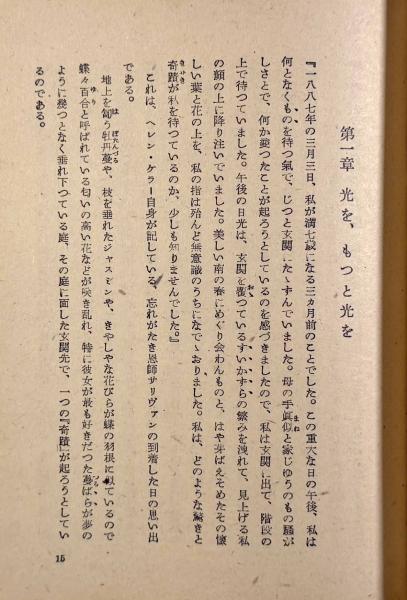 第一章 光を、もつと光を
『一八八七年の三月三日、私が満七歳になる三ヵ月前のことでした。この重大な日の午後、私は
何となくものを待つ氣で、じつと玄関にたゝずんでいました。母の手眞似と家じゆうのもの騒が
しさとで、何か変つたことが起ろうとしているのを感づきましたので、私は玄関に出て、階段の
上で待つていました。午後の日光は、玄関を覆つているすいかずらの繁みを洩れて、見上げる私
の顔の上に降り注いでいました。美しい南の春にめぐり会わんものと、はや芽ばえそめたその懐
しい葉と花の上を、私の指は殆んど無意識のうちになでゝおりました。私は、どのような驚きと
奇蹟が私を待つているのか、少しも知りませんでした。』
これは、ヘレン・ケラー自身が記している、忘れがたき恩師サリヴァンの到着した日の思い出
である。
地上を匍う牡丹蔓や、枝を垂れたジャスミンや、きやしやな花びらが蝶の羽根に似ているので
蝶々百合と呼ばれている匂いの高い花などが咲き乱れ、特に彼女が最も好きだつた蔓ばらが夢の
ように幾つとなく垂れ下つている庭、その庭に面した玄関先で、一つの『奇蹟』が起ろうとしてい
るのである。
15